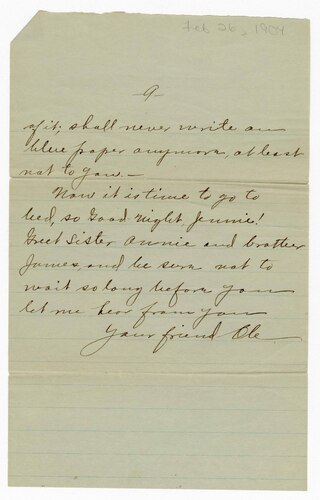 Feb 26, 1904
-9-
of it; shall never write on
blue paper anymore, at least
not to you.—
Now it is time to go to
bed, so Good Night Jennie!
Greet Sister Annie and brother
James, and be sure not to
wait so long before you
let me hear from you
Your friend Ole